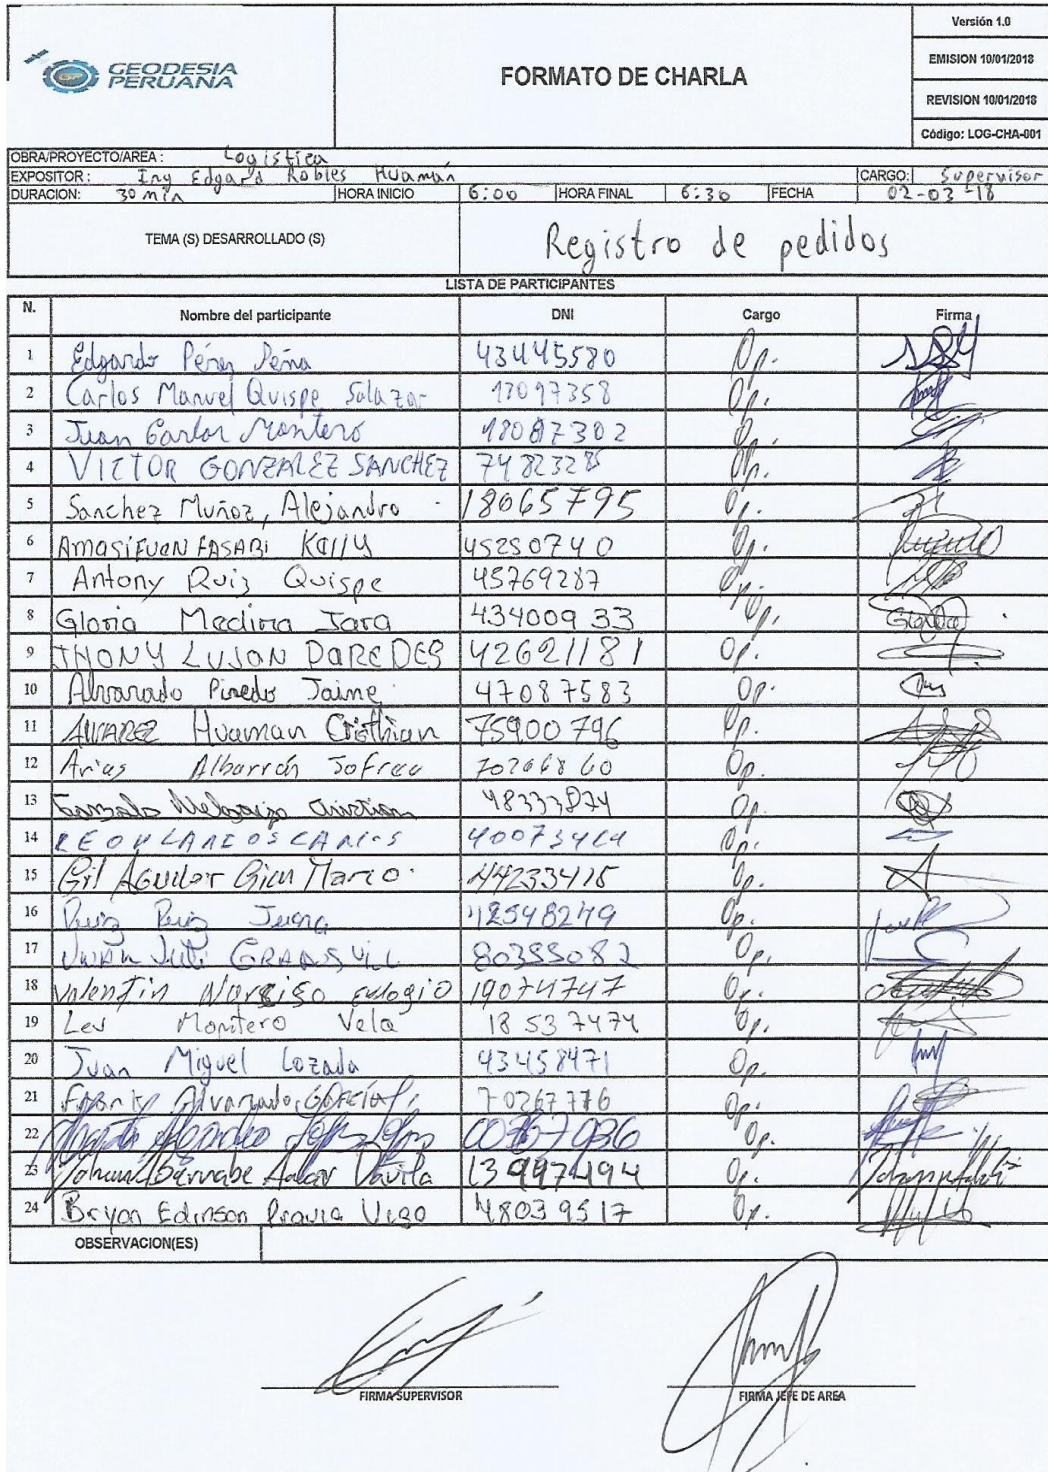 GEODESIA
PERUANA
FORMATO DE CHARLA
Versión 1.0
EMISION 10/01/2018
REVISION 10/01/2018
Código: LOG-CHA-001
OBRA/PROYECTO/AREA: Logistica
EXPOSITOR: Ing Edgard Robles Huamán CARGO: Supervisor
DURACIÓN: 30 min HORA INICIO 6:00 HORA FINAL 6:30 FECHA 02-03-18
TEMA (S) DESARROLLADO (S) Registro de pedidos
LISTA DE PARTICIPANTES
N. Nombre del participante DNI Cargo Firma
1 Edgardo Pérez Peña 43445580 Op.
2 Carlos Manuel Quispe Salazar Op.
3 Juan Carlos Montero Op.
4 VICTOR GONZALEZ SANCHEZ Op.
5 Sanchez Muñoz, Alejandro 18065795 Op.
6 AMASIFUEN FASABI Kelly 45250740 Op.
7 Antony Ruiz Quispe 45769287 Op.
8 Gloria Medina Jara 43400933 Op.
9 JHONY LUJON PAREDES 42621181 Op.
10 Alvarado Pinedo Jaime 47087583 Op.
11 ALVAREZ Huaman Cristhian 75900796 Op.
12 Arias Albarrán 70266860 Op.
13 48333874 Op.
14 Op.
15 Gil Aguilar Gian Marco 44233415 Op.
16 Ruiz Ruiz Juana Op.
17 Op.
18 Valentin Narciso eulogio 19074747 Op.
19 Montero Vela 18537474 Op.
20 Juan Miguel Lozada 43458471 Op.
21 Frank Alvarado García 70267776 Op.
22 Op.
23 Op.
24 Bryan Edinson Pravia Vigo 48039517 Op.
OBSERVACION(ES)
FIRMA SUPERVISOR FIRMA JEFE DE AREA